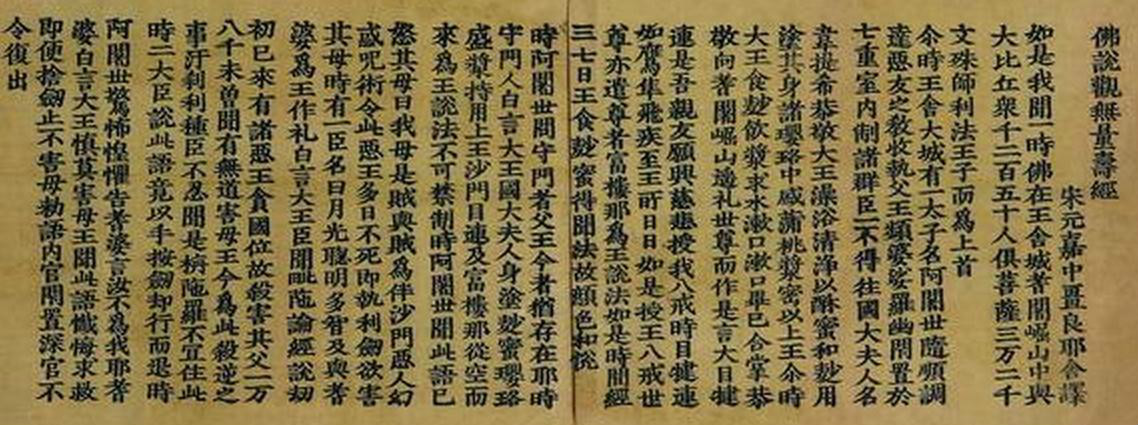 佛說觀無量壽經
宋元嘉中畺良耶舍譯
如是我聞一時佛在王舍城耆闍崛山中與
大比丘衆千二百五十人俱菩薩三万二千
文殊師利法王子而爲上首
尒時王舍大城有一太子名阿闍世隨順調
達惡友之教收執父王頻婆娑羅幽閇置於
七重室内制諸群臣一不得往國大夫人名
韋提希恭敬大王澡浴清淨以酥蜜和麨用
塗其身諸瓔珞中盛蒲桃漿密以上王尒時
大王食麨飲漿求水漱口漱口畢已合掌恭
敬向耆闍崛山遥礼世尊而作是言大目揵
連是吾親友願興慈悲授我八戒時目揵連
如鷹隼飛疾至王所日日如是授王八戒世
尊亦遣尊者富樓那爲王說法如是時間經
三七日王食麨蜜得聞法故顔色和悅
時阿闍世問守門者父王今者猶存在耶時
守門人白言大王國大夫人身塗麨蜜瓔珞
盛漿持用上王沙門目連及富樓那從空而
來爲王說法不可禁制時阿闍世聞此語已
怒其母曰我母是賊與賊爲伴沙門惡人幻
或呪術令此惡王多日不死即執利劔欲害
其母時有一臣名曰月光聰明多智及與耆
婆爲王作礼白言大王臣聞毗陁論經說劫
初已來有諸惡王貪國位故殺害其父一万
八千未曾聞有無道害母王今爲此殺逆之
事汙刹利種臣不忍聞是栴陁羅不宜住此
時二大臣說此語竟以手按劔却行而退時
阿闍世驚怖惶懼告耆婆言汝不爲我耶耆
婆白言大王慎莫害母王聞此語懺悔求救
即便捨劔止不害母勑語内官閇置深官不
令復出